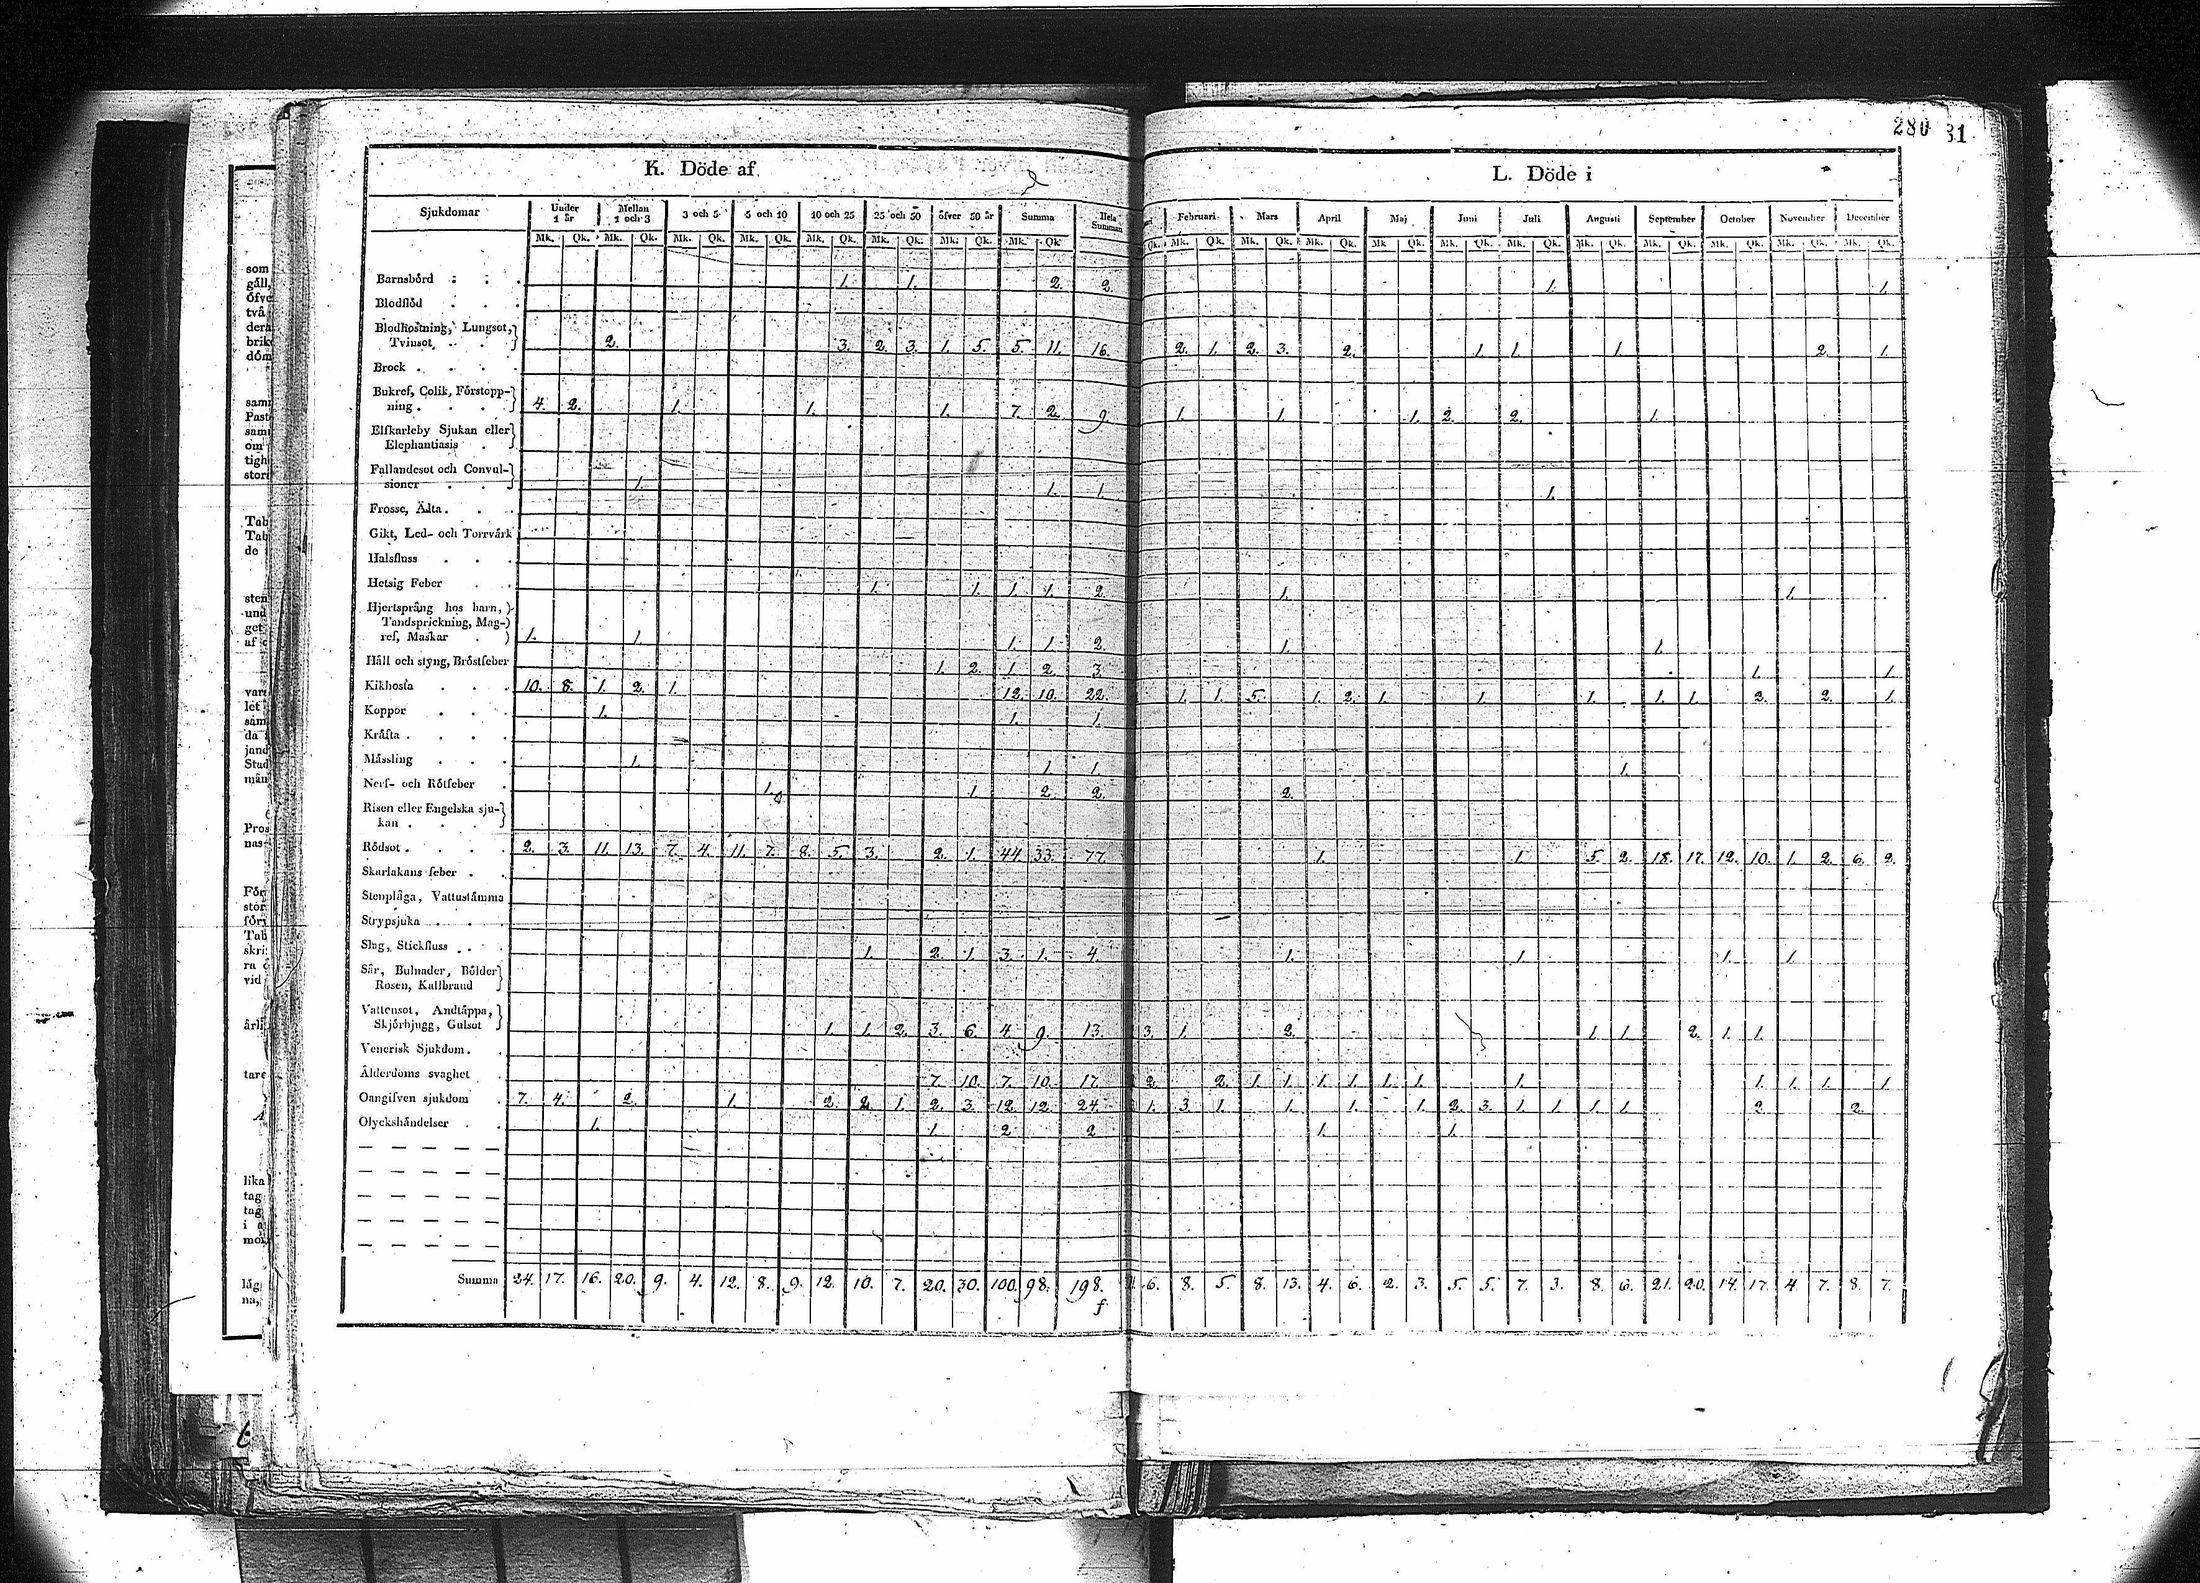 280 31
K. Döde af
L. Döde i
Sjukdomar Under 1 år Mellan 1 och 3 3 och 5 5 och 10 10 och 25 25 och 50 öfver 50 år Summa Hela Summan Februari Mars April Maj Juni Juli Augusti September October November December
Mk. Qk. Mk. Qk. Mk. Qk. Mk. Qk. Mk. Qk. Mk. Qk. Mk. Qk. Mk. Qk. Qk. Mk. Qk. Mk. Qk. Mk. Qk. Mk Qk. Mk. Qk. Mk. Qk. Mk. Qk. Mk. Qk. Mk. Qk. Mk. Qk. Mk. Qk.
Barnsbörd . . . 1. 1. 2. 2. 1. 1.
Blodflöd . . .
Blodhostning, Lungsot,
Tvinsot . . . 2. 3. 2. 3. 1. 5. 5. 11. 16. 2. 1. 2. 3. 2. 1. 1. 1. 2. 1.
Brock . . . .
Bukref, Colik, Förstopp-
ning . . . . 4. 2. 1. 1. 1. 7. 2. 9. 1. 1. 1. 2. 2. 1.
Elfkarleby Sjukan eller
Elephantiasis .
Fallandesot och Convul-
sioner . . . 1. 1. 1. 1.
Frosse, Älta . . .
Gikt, Led- och Torrvärk
Halsfluss . . .
Hetsig Feber . . 1. 1. 1. 1. 2. 1. 1.
Hjertsprång hos barn,
Tandsprickning, Mag-
ref, Maskar . 1. 1. 1. 1. 2. 1. 1.
Håll och styng, Bröstfeber 1. 2. 1. 2. 3. 1. 1.
Kikhosta . . . 10. 8. 1. 2. 1. 12. 10. 22. 1. 1. 5. 1. 2. 1. 1. 1. 1. 1. 2. 2. 1.
Koppor . . . 1. 1. 1.
Kräfta . . . .
Mässling . . . 1. 1. 1. 1.
Nerf- och Rötfeber . 1. 1. 2. 2. 2.
Risen eller Engelska sju-
kan . . . .
Rödsot . . . . 2. 3. 11. 13. 7. 4. 11. 7. 8. 5. 3. 2. 1. 44. 33. 77. 1. 1. 5. 2. 18. 17. 12. 10. 1. 2. 6. 2.
Skarlakans feber . .
Stenplåga, Vattustämma
Strypsjuka . . .
Slag, Stickfluss . . . 1. 2. 1. 3. 1. 4. 1. 1. 1. 1.
Sår, Bulnader, Bölder
Rosen, Kallbrand
Vattensot, Andtäppa,
Skjörbjugg, Gulsot 1. 1. 2. 3. 6. 4. 9. 13. 3. 1. 2. 1. 1. 2. 1. 1.
Venerisk Sjukdom . .
Ålderdoms svaghet . 7. 10. 7. 10. 17. 2. 2. 1. 1. 1. 1. 1. 1. 1. 1. 1. 1. 1.
Oangifven sjukdom . 7. 4. 2. 1. 2. 2. 1. 2. 3. 12. 12. 24. 1. 3. 1. 1. 1. 1. 2. 3. 1. 1. 1. 1. 2. 2.
Olyckshändelser . . 1. 1. 2 2 1. 1.
Summa 24. 17. 16. 20. 9. 4. 12. 8. 9. 12. 10. 7. 20. 30. 100. 98. 198. 6. 8. 5. 8. 13. 4. 6. 2. 3. 5. 5. 7. 3. 8. 6. 21. 20. 14. 17. 4. 7. 8. 7.